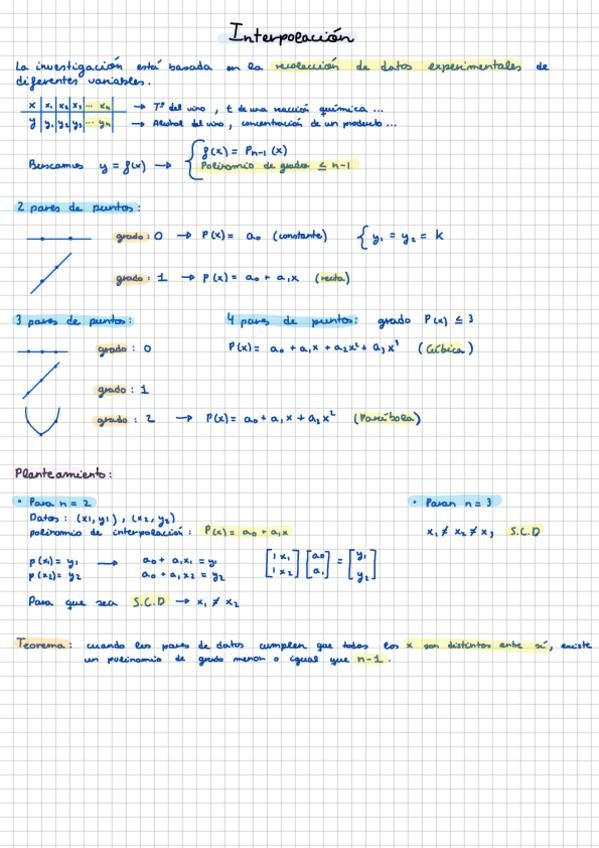 Interpolación
La investigación está basada en la recolección de datos experimentales de
diferentes variables.
x | x₁ | x₂ | x₃ | ... xₙ → Tª del vino, t de una reacción química ...
y | y₁ | y₂ | y₃ | ... yₙ → Alcohol del vino, concentración de un producto ...
Buscamos y = f(x) → { f(x) = Pₙ₋₁(x)
Polinomio de grado ≤ n-1
2 pares de puntos:
grado: 0 → P(x) = a₀ (constante) { y₁ = y₂ = k
grado: 1 → P(x) = a₀ + a₁x (recta)
3 pares de puntos:
grado: 0
grado: 1
grado: 2 → P(x) = a₀ + a₁x + a₂x² (Parábola)
4 pares de puntos: grado P(x) ≤ 3
P(x) = a₀ + a₁x + a₂x² + a₃x³ (Cúbica)
Planteamiento:
• Para n = 2
Datos: (x₁, y₁), (x₂, y₂)
polinomio de interpolación: P(x) = a₀ + a₁x
p(x₁) = y₁ → a₀ + a₁x₁ = y₁ [1 x₁] [a₀] = [y₁]
p(x₂) = y₂ a₀ + a₁x₂ = y₂ [1 x₂] [a₁] [y₂]
Para que sea S.C.D → x₁ ≠ x₂
• Paran n = 3
x₁ ≠ x₂ ≠ x₃ S.C.D
Teorema: cuando los pares de datos cumplen que todos los x son distintos entre sí, existe
un polinomio de grado menor o igual que n-1.